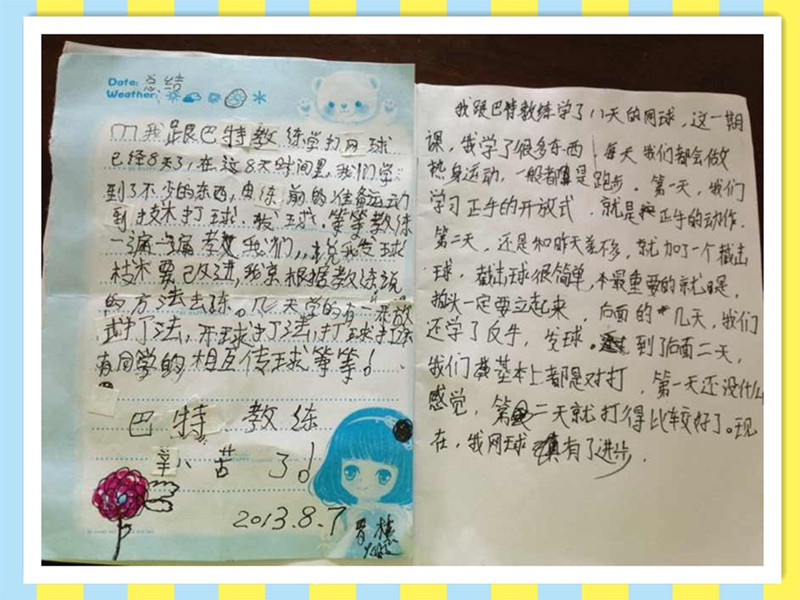 Date: 总结
Weather:
我跟巴特教练学打网球
已经8天了,在这8天时间里,我们学
到了不少的东西,由练前的准备运动
到技术打球.发球.等等教练
一遍一遍教我们,说我发球
技术要改进,我就根据教练说
的方法去练。几天学的有开放
式打法,开球打法,打球打法
有同学的相互传球等等!
巴特教练
辛苦了!
2013.8.7
我跟巴特教练学了八天的网球,这一期
课,我学了很多东西,每天我们都会做
热身运动,一般都是跑步。第一天,我们
学习正手的开放式,就是正手的动作.
第二天,还是和昨天差不多,就加了一个截击
球,截击球很简单,最重要的就是,
拍头一定要立起来,后面的几天,我们
还学了反手,发球。到了后面二天,
我们基本上都是对打,第一天还没什么
感觉,第二天就打得比较好了。现
在,我网球真有了进步.